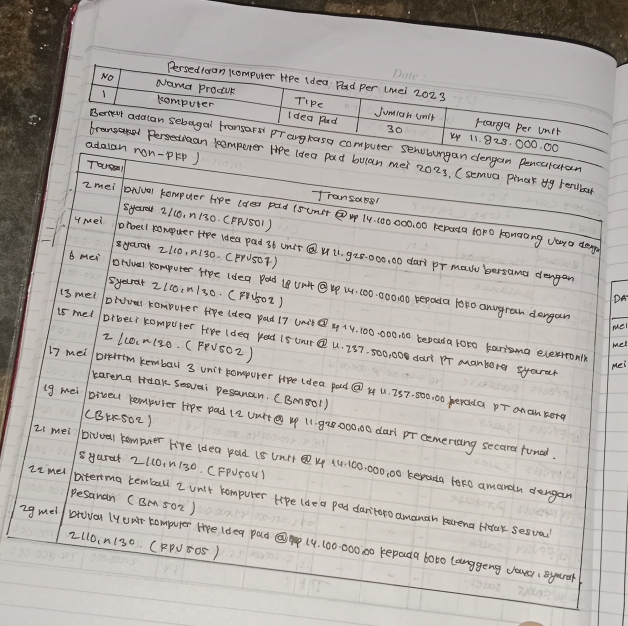 Date:
Persediaan komputer tipe Idea Pad per 1 mei 2023
NO Nama Produk Tipe Jumlah unit Harga per unit
1 komputer Idea Pad 30 Rp 11.925.000.00
Berikut adalah sebagai transaksi PT angkasa computer sehubungan dengan pencatatan
transaksi Persediaan komputer tipe Idea Pad bulan mei 2023. (semua pihak yg terlibat
adalah non-PKP)
Tanggal Transaksi
2 mei Dijual komputer tipe Idea pad 15 unit @ Rp 14.100.000,00 kepada toko kondang Jaya dengan
syarat 2/10, n/30. (FPJ501)
4 mei Dibeli komputer tipe Idea pad 36 unit @ Rp 11.925.000,00 dari PT maju bersama dengan
syarat 2/10, n/30
6 mei Dijual komputer tipe Idea Pad 18 unit @ Rp 14.100.000,00 kepada toko anugrah dengan
syarat 2/10, n/30. (FPJ502)
13 mei Dijual komputer tipe Idea pad 17 unit @ Rp 14.100.000,00 kepada toko karisma elektronik
15 mei Dibeli komputer tipe Idea pad 15 unit @ 11.737.500,00 dari PT syarat
2/10, n/30. (FPU502)
17 mei Dikirim kembali 3 unit komputer tipe Idea pad @ Rp 11.737.500.00 kepada PT
karena tidak sesuai pesanan. (BM501)
19 mei Dibeli komputer tipe pad 12 unit @ Rp 11.925.000,00 dari PT cemerlang secara tunai.
(BKK502)
21 mei Dijual komputer tipe Idea pad 15 unit @ Rp 14.100.000,00 kepada toko amanah dengan
syarat 2/10, n/30. (FPJ504)
22 mei Diterima kembali 2 unit komputer tipe Idea pad dari toko amanah karena tidak sesuai
pesanan (BM 502)
29 mei Dijual 14 unit komputer tipe Idea pad @ Rp 14.100.000.00 kepada toko langgeng Jaya, syarat
2/10, n/30. (FPJ 505)
mei
mei